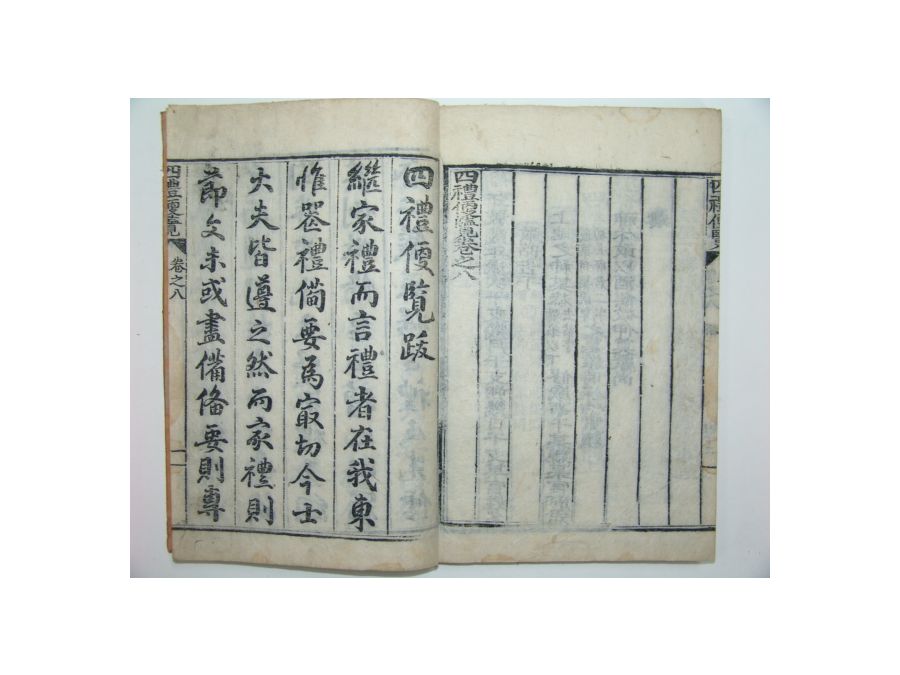 四禮便覽卷之八
四禮便覽跋
繼家禮而言禮者在我東
惟喪禮備要爲㝡切今士
大夫皆遵之然而家禮則
節文未或盡備備要則專
四禮便覽
卷之八
一